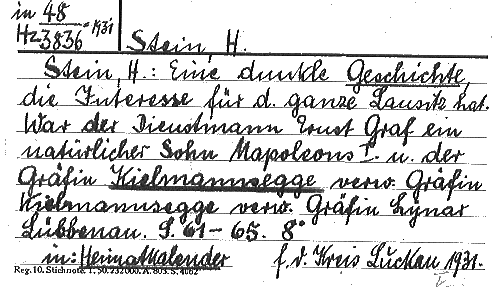 in 48
Hz 3836 - 1931
Stein, H.
Stein, H.: Eine dunkle Geschichte,
die Interesse für d. ganze Lausitz hat.
War der Dienstmann Ernst Graf ein
natürlicher Sohn Napoleons I. u. der
Gräfin Kielmannsegge verw. Gräfin
Kielmannsegge verw. Gräfin Lynar
Lübbenau. S. 61-65. 8°
in: Heimatkalender f. d. Kreis Luckau 1931.
Reg. 10. Stichnote. 1. 50. 232000. A. 803. S. 4062